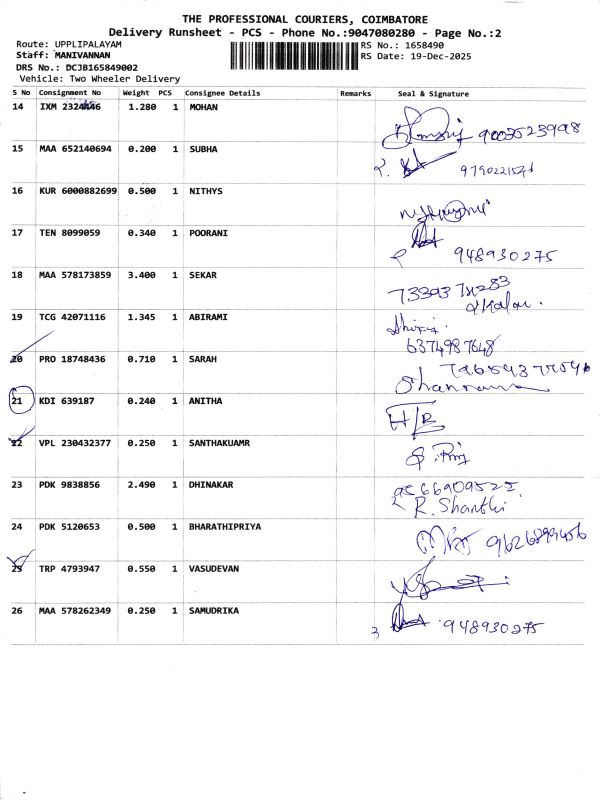 THE PROFESSIONAL COURIERS, COIMBATORE
Delivery Runsheet - PCS - Phone No.:9047080280 - Page No.:2
Route: UPPLIPALAYAM
Staff: MANIVANNAN
DRS No.: DCJB165849002
Vehicle: Two Wheeler Delivery
RS No.: 1658490
RS Date: 19-Dec-2025
S No Consignment No Weight PCS Consignee Details Remarks Seal & Signature
14 IXM 1.280 1 MOHAN
9003523998
15 MAA 652140694 0.200 1 SUBHA
16 KUR 6000882699 0.500 1 NITHYS
17 TEN 8099059 0.340 1 POORANI
948930275
18 MAA 578173859 3.400 1 SEKAR
19 TCG 42071116 1.345 1 ABIRAMI
6374987648
20 PRO 18748436 0.710 1 SARAH
21 KDI 639187 0.240 1 ANITHA
22 VPL 230432377 0.250 1 SANTHAKUAMR
23 PDK 9838856 2.490 1 DHINAKAR
R. Shanthi
24 PDK 5120653 0.500 1 BHARATHIPRIYA
25 TRP 4793947 0.550 1 VASUDEVAN
26 MAA 578262349 0.250 1 SAMUDRIKA
948930275